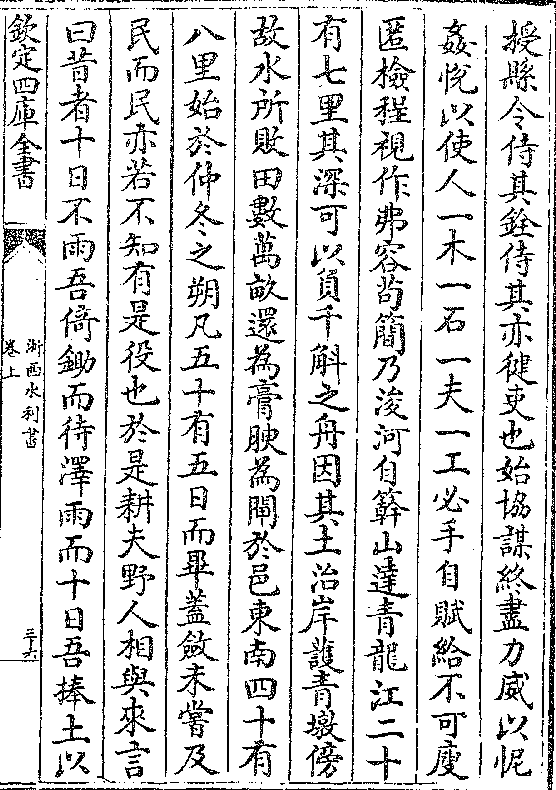 授縣令侍其銓侍其亦健吏也始協謀終盡力威以怩
姦悅以使人一木一石一夫一工必手自賦給不可廋
匿檢程視作弗容茍簡乃浚河自簳山達青龍江二十
有七里其深可以負千斛之舟因其土治岸護青墩傍
故水所敗田數萬畝還為膏腴為閘於邑東南四十有
八里始於仲冬之朔凡五十有五日而畢蓋斂未嘗及
民而民亦若不知有是役也於是耕夫野人相與來言
曰昔者十日不雨吾倚鋤而待澤雨而十日吾捧土以
欽定四庫全書
浙西水利書
卷上
三十六